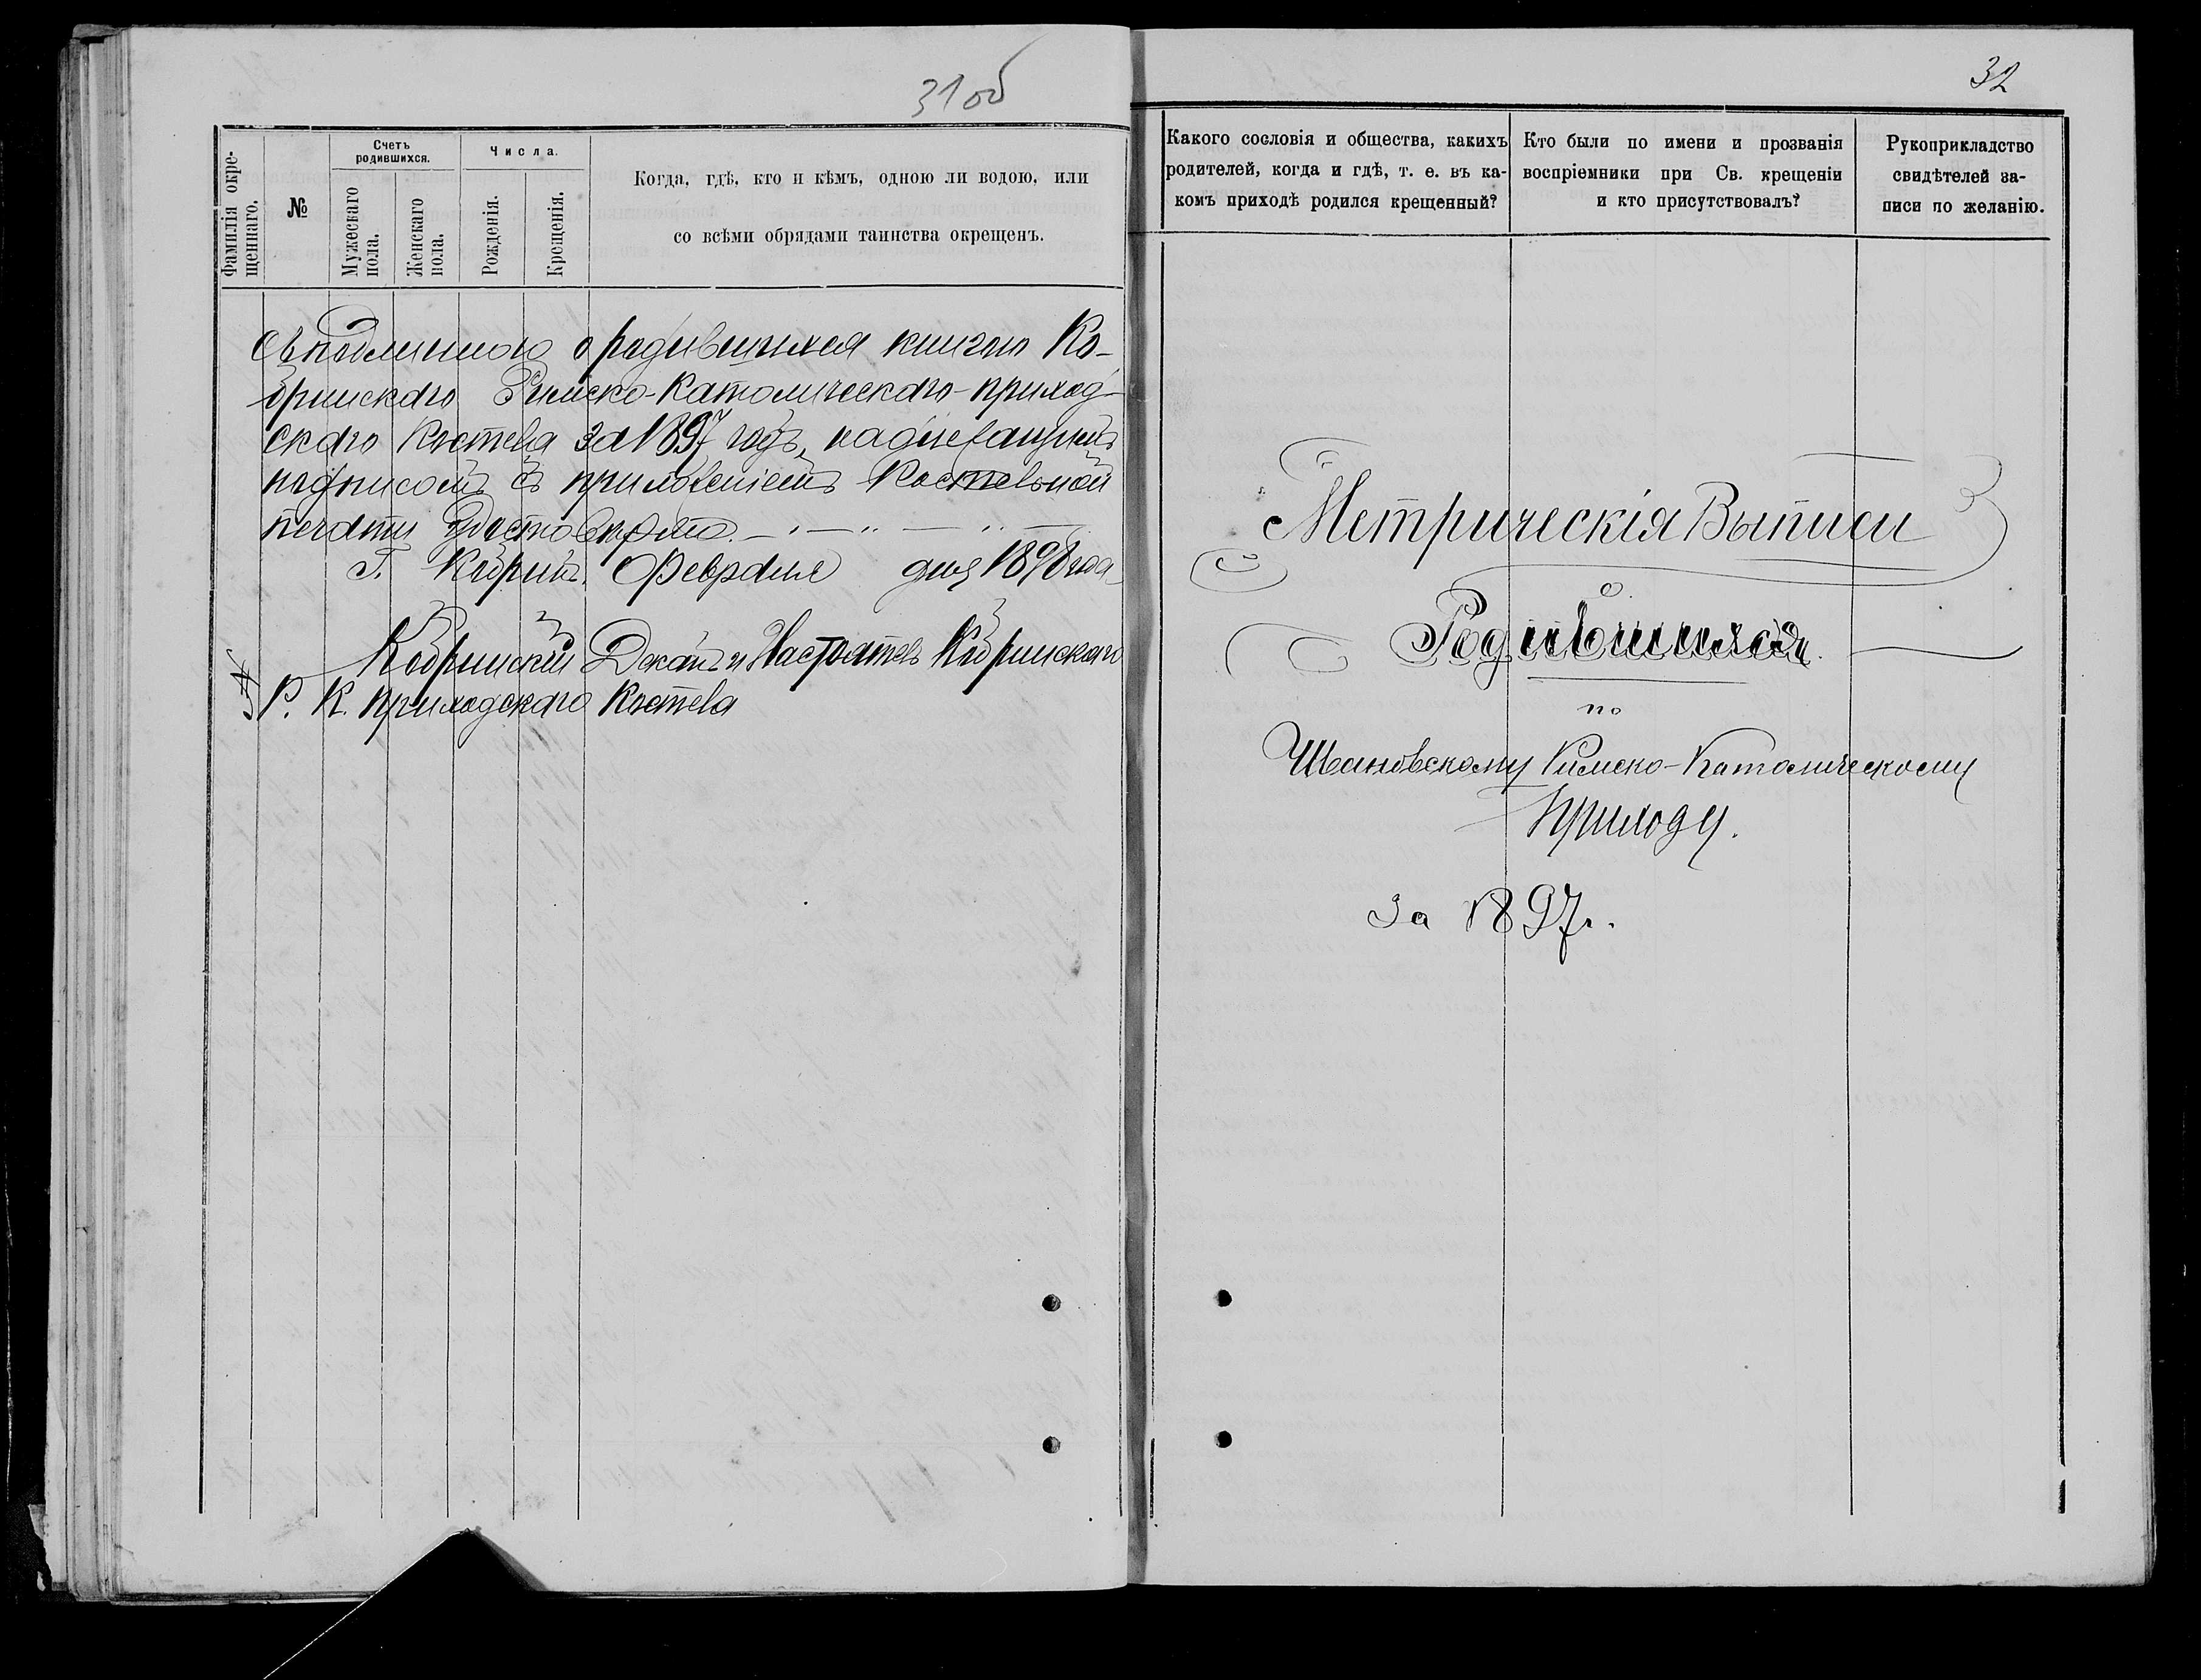 31 об
Фамилія окре-
щеннаго.
№
Счетъ
родившихся.
Мужескаго
пола.
Женскаго
пола.
Числа.
Рожденія.
Крещенія.
Когда, гдѣ, кто и кѣмъ, одною ли водою, или
со всѣми обрядами таинства окрещенъ.
Съ подлинною о родившихся книгою Ко-
бринскаго Римско-Католическаго-приход-
скаго Костела за 1897 годъ, надлежащимъ
подписомъ съ приложеніемъ Костельной
печати
Г. Кобринъ. Февраля дня 1898 года
Кобринскій Деканъ и Настоятель Кобринскаго
Р. К. приходскаго Костела
32
Какого сословія и общества, какихъ
родителей, когда и гдѣ, т. е. въ ка-
комъ приходѣ родился крещенный?
Кто были по имени и прозванія
воспріемники при Св. крещеніи
и кто присутствовалъ?
Рукоприкладство
свидѣтелей за-
писи по желанію.
Метрическія Выписи
о
Родившихся
по
Римско-Католическому
Приходу.
За 1897 г.